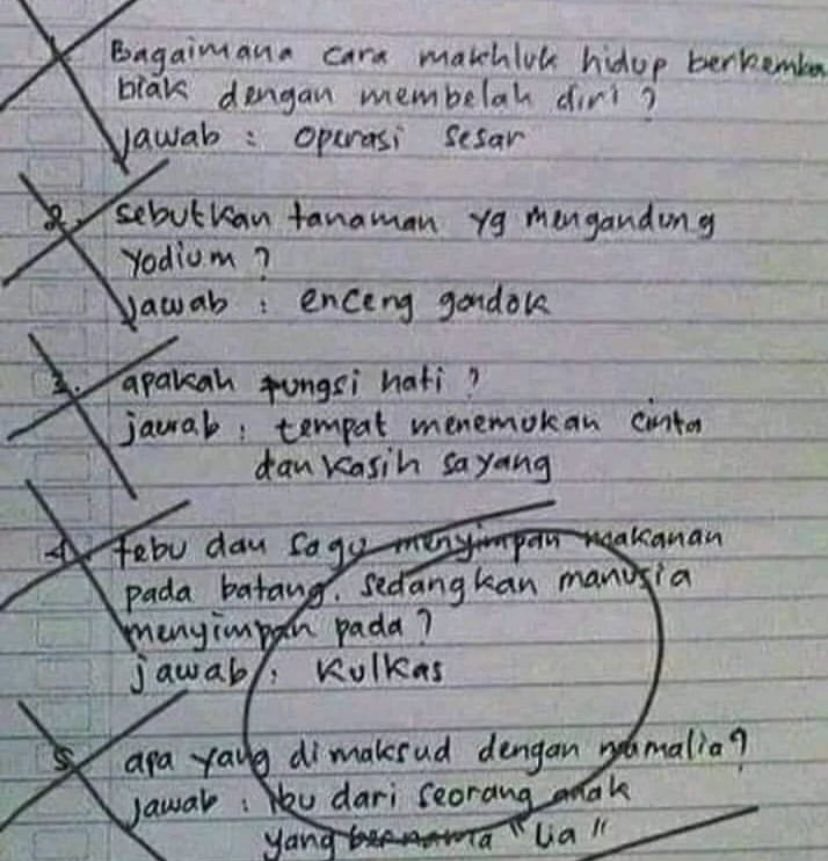 Bagaimana cara makhluk hidup berkemba
biak dengan membelah diri ?
jawab : operasi sesar
2. sebutkan tanaman yg mengandung
yodium ?
jawab : enceng gondok
3. apakah fungsi hati ?
jawab : tempat menemukan cinta
dan kasih sayang
4. tebu dan sagu menyimpan makanan
pada batang. sedangkan manusia
menyimpan pada ?
jawab : kulkas
5. apa yang di maksud dengan mamalia ?
jawab : ibu dari seorang anak
yang bernama "Lia"